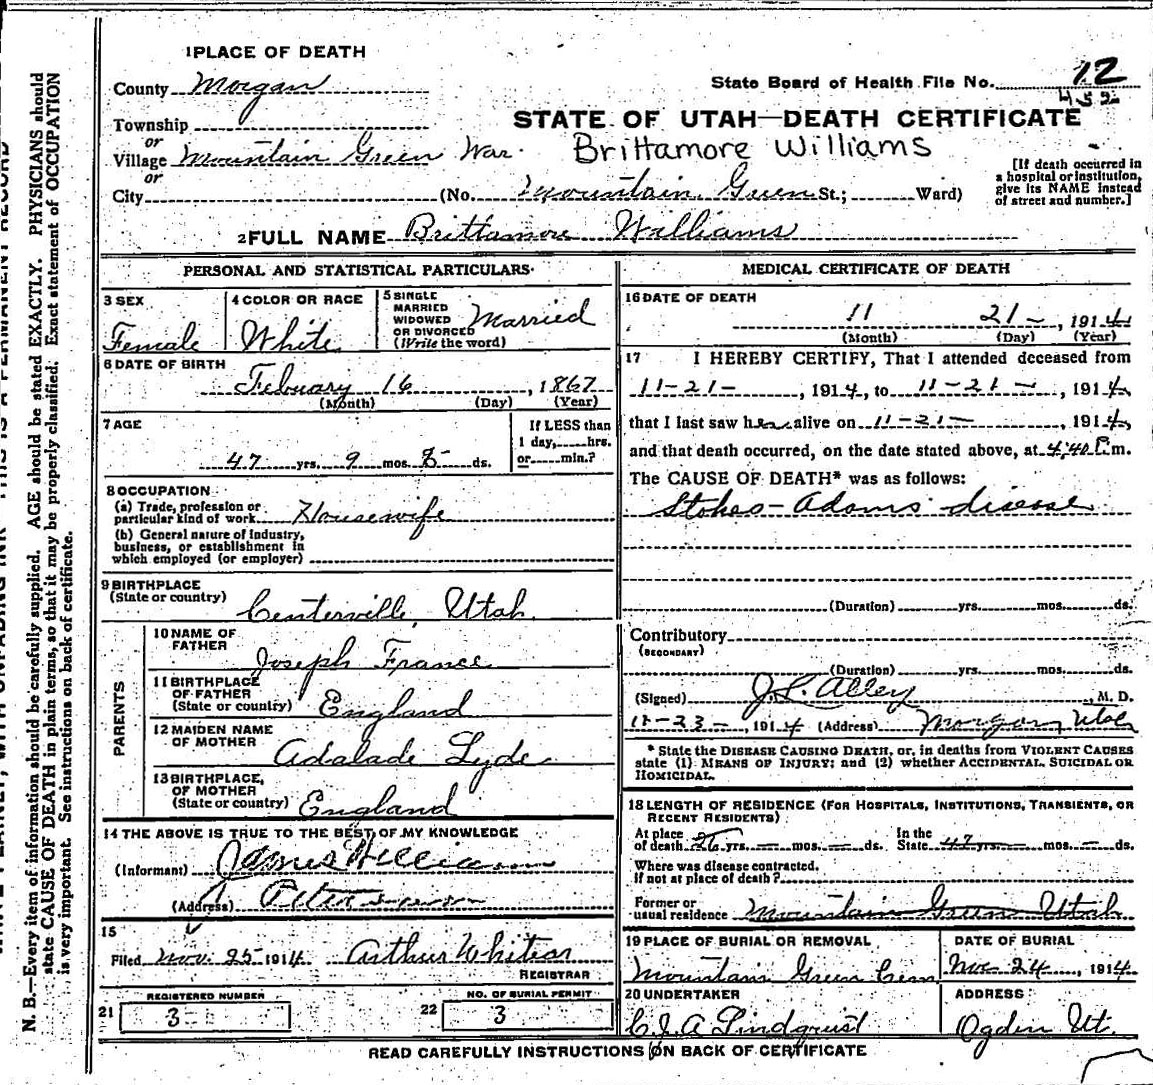 1 PLACE OF DEATH
County Morgan
State Board of Health File No. 12
452
Township
STATE OF UTAH—DEATH CERTIFICATE
or
Village Mountain Green War. Brittamore Williams
or
City (No. Mountain Green St.; Ward)
[If death occurred in
a hospital or institution,
give its NAME instead
of street and number.]
2 FULL NAME Brittamore Williams
PERSONAL AND STATISTICAL PARTICULARS
3 SEX
Female
4 COLOR OR RACE
White
5 SINGLE
MARRIED
WIDOWED
OR DIVORCED
(Write the word)
Married
6 DATE OF BIRTH
Febuary 16, 1867
(Month) (Day) (Year)
7 AGE
47 yrs. 9 mos. 5 ds.
If LESS than
1 day, hrs.
or min.?
8 OCCUPATION
(a) Trade, profession or
particular kind of work Housewife
(b) General nature of industry,
business, or establishment in
which employed (or employer)
9 BIRTHPLACE
(State or country) Centerville, Utah.
PARENTS
10 NAME OF
FATHER
Joseph France
11 BIRTHPLACE
OF FATHER
(State or country) England
12 MAIDEN NAME
OF MOTHER
Adalade Lyde
13 BIRTHPLACE,
OF MOTHER
(State or country) England
14 THE ABOVE IS TRUE TO THE BEST OF MY KNOWLEDGE
(Informant) James Williams
(Address) Peterson
15
Filed Nov. 25 1914 Arthur Whitear
REGISTRAR
21 REGISTERED NUMBER
3
22 NO. OF BURIAL PERMIT
3
MEDICAL CERTIFICATE OF DEATH
16 DATE OF DEATH
11 21 , 1914
(Month) (Day) (Year)
17 I HEREBY CERTIFY, That I attended deceased from
11-21- , 1914, to 11-21- , 1914,
that I last saw her alive on 11-21- , 1914,
and that death occurred, on the date stated above, at 4:40 P.m.
The CAUSE OF DEATH* was as follows:
Stokes-Adams disease
(Duration) yrs. mos. ds.
Contributory
(SECONDARY)
(Duration) yrs. mos. ds.
(Signed) J.L. Abbey, M. D.
11-23-, 1914 (Address) Morgan, Utah
* State the DISEASE CAUSING DEATH, or, in deaths from VIOLENT CAUSES
state (1) MEANS OF INJURY; and (2) whether ACCIDENTAL, SUICIDAL OR
HOMICIDAL.
18 LENGTH OF RESIDENCE (FOR HOSPITALS, INSTITUTIONS, TRANSIENTS, OR
RECENT RESIDENTS)
At place
of death 26 yrs. — mos. — ds.
In the
State 47 yrs. — mos. — ds.
Where was disease contracted,
If not at place of death?
Former or
usual residence Mountain Green Utah
19 PLACE OF BURIAL OR REMOVAL
Mountain Green Cem
DATE OF BURIAL
Nov. 24, 1914
20 UNDERTAKER
C.J.A Lindquist
ADDRESS
Ogden Ut.
READ CAREFULLY INSTRUCTIONS ON BACK OF CERTIFICATE
N. B.—Every item of information should be carefully supplied. AGE should be stated EXACTLY. PHYSICIANS should
state CAUSE OF DEATH in plain terms, so that it may be properly classified. Exact statement of OCCUPATION
is very important. See instructions on back of certificate.